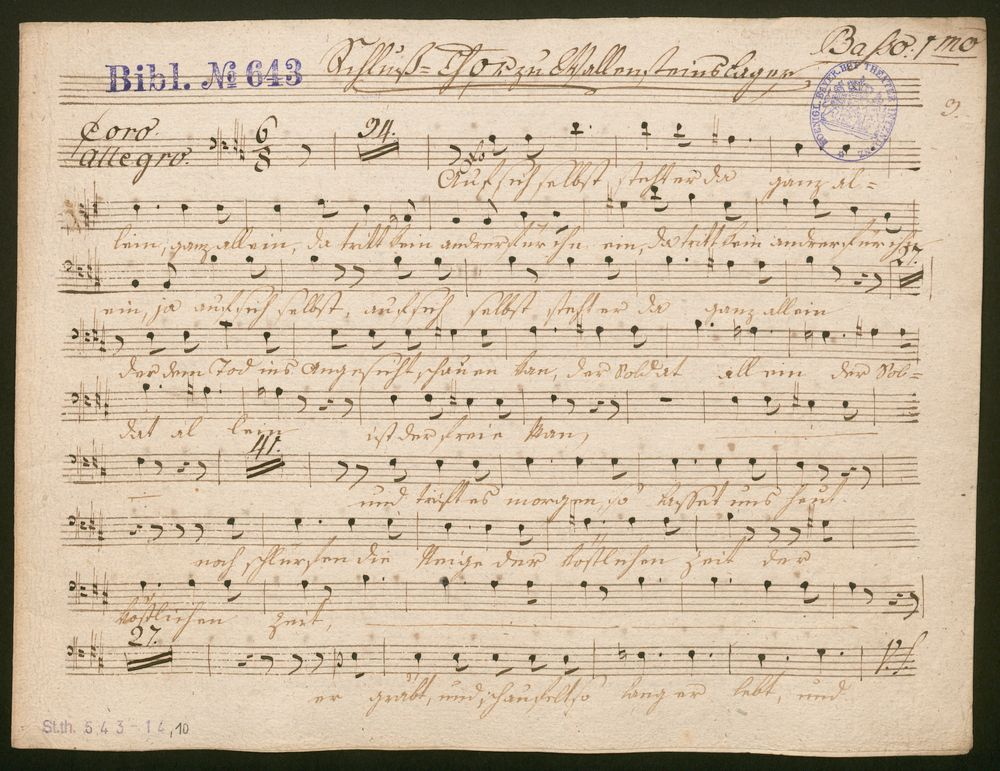 Basso. 1mo
Bibl. № 643
Schluß=Chor zu Wallensteins Lager
KOENIGL. BAYER. HOF THEATER INTENDANZ
9.
Coro.
Allegro.
6
8
94.
Auf sich selbst steht er da ganz al=
lein, ganz allein, da tritt kein andrer für ihn ein, da tritt kein andrer für ihn
27.
ein, ja auf sich selbst, auf sich selbst steht er da ganz allein
der dem Tod ins Angesicht schauen kan, der Soldat allein der Sol=
dat allein ist der freie Man,
41.
und trifft es morgen, so lasset uns heut
noch schlürfen die Neige der köstlichen Zeit der
köstlichen Zeit,
27.
er gräbt, und schaufelt, so lang er lebt, und
St.th. 643-14,10